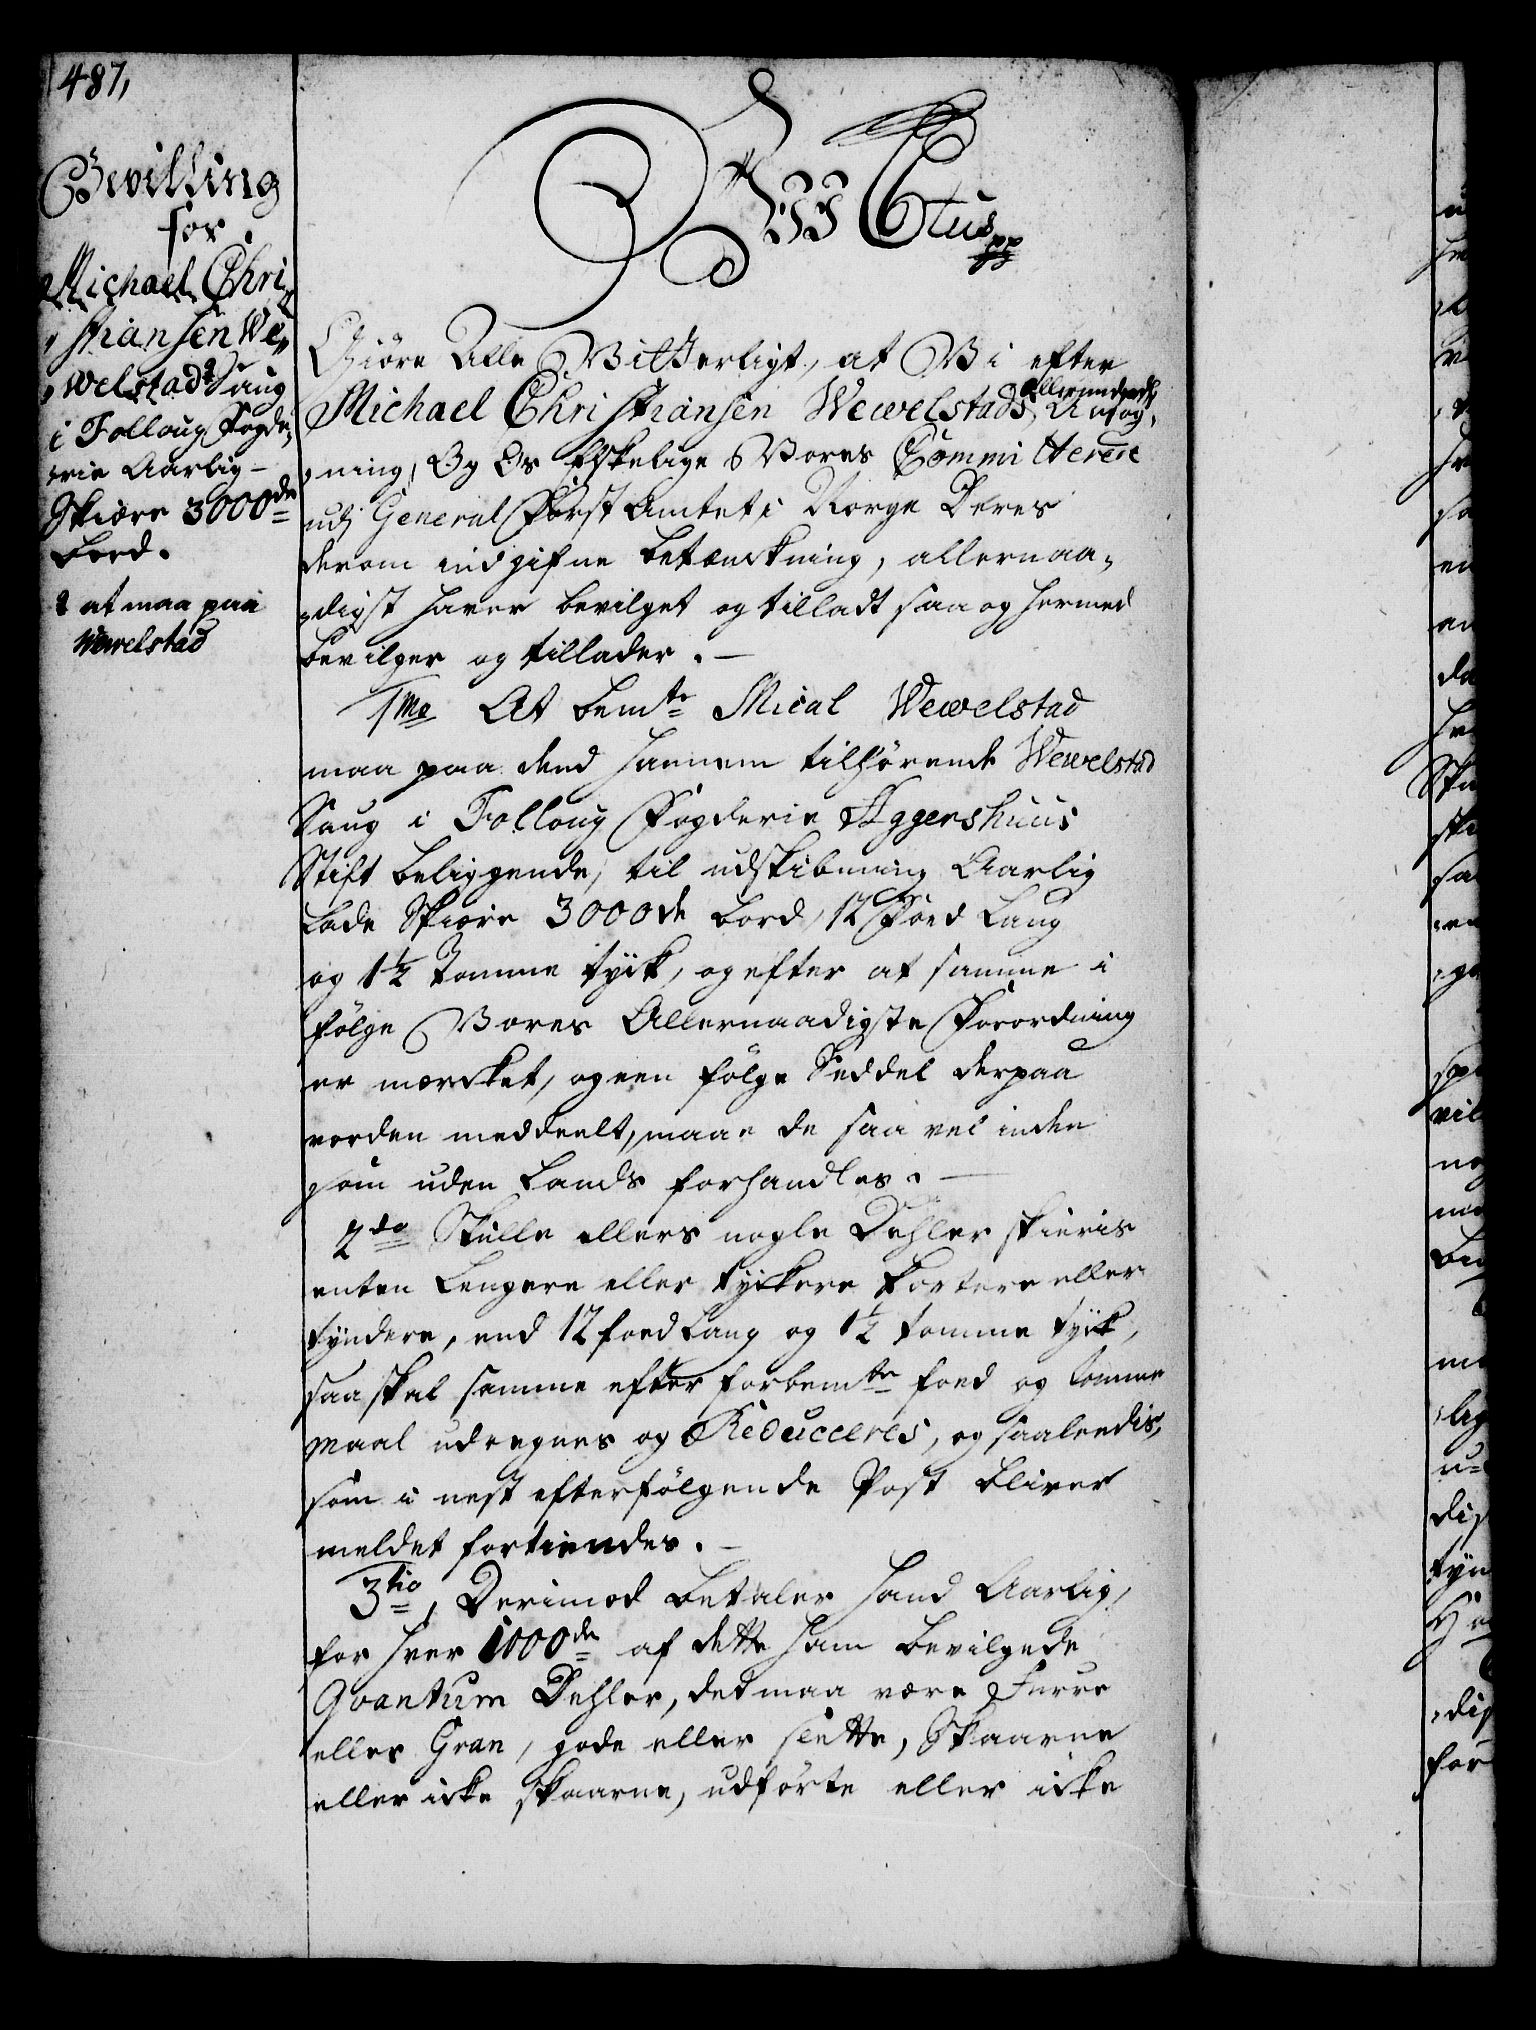 487,
Bevilling
for
Michael Chri-
stiansen We-
welstad Saug
i Folloug Fogde-
rie Aarlig
Skiære 3000de
bord.
at maa paa
Wewelstad
Wii Ctus pp
Giöre Alle Vitterligt, at Vi efter
Michael Christiansen Wewelstads allerunderd: Ansög-
ning, Og Os Elskelige Vores Committerede
udj General Forst Amtet i Norge Deres
derom indgifne betænckning, allernaa-
digst haver bevilget og tilladt saa og hermed
bevilger og tillader.
1mo At bemte Mical Wewelstad
maa paa dend hannem tilhörende Wewelstad
Saug i Folloug Fogderie Aggershuus
Stift beliggende, til udskibning Aarlig
lade Skiære 3000de bord, 12 Foed Lang
og 1½ tomme tyck, og efter at samme i
fölge Vores Allernaadigste Forordning
er mercket, og een fölge Seddel derpaa
vorden meddeelt, maae de saa vel inden
som uden Lands forhandles.
2do Skulle ellers nogle Dehler skieris
enten Lengere eller tyckere kortere eller
tyndere, end 12 foed Lang og 1½ tomme tyck,
saa skal samme efter forbemte foed og tomme
Maal udregnes og Reduceeres, og saaleedis,
som i nest efterfölgende Post bliver
meldet fortiendes.
3tio, Derimod betaler hand Aarlig,
for hver 1000de af dette ham bevilgede
Qvantum Dehler, det maa være Furre
eller Gran, gode eller slette, Skaarne
eller icke skaarne, udförte eller icke